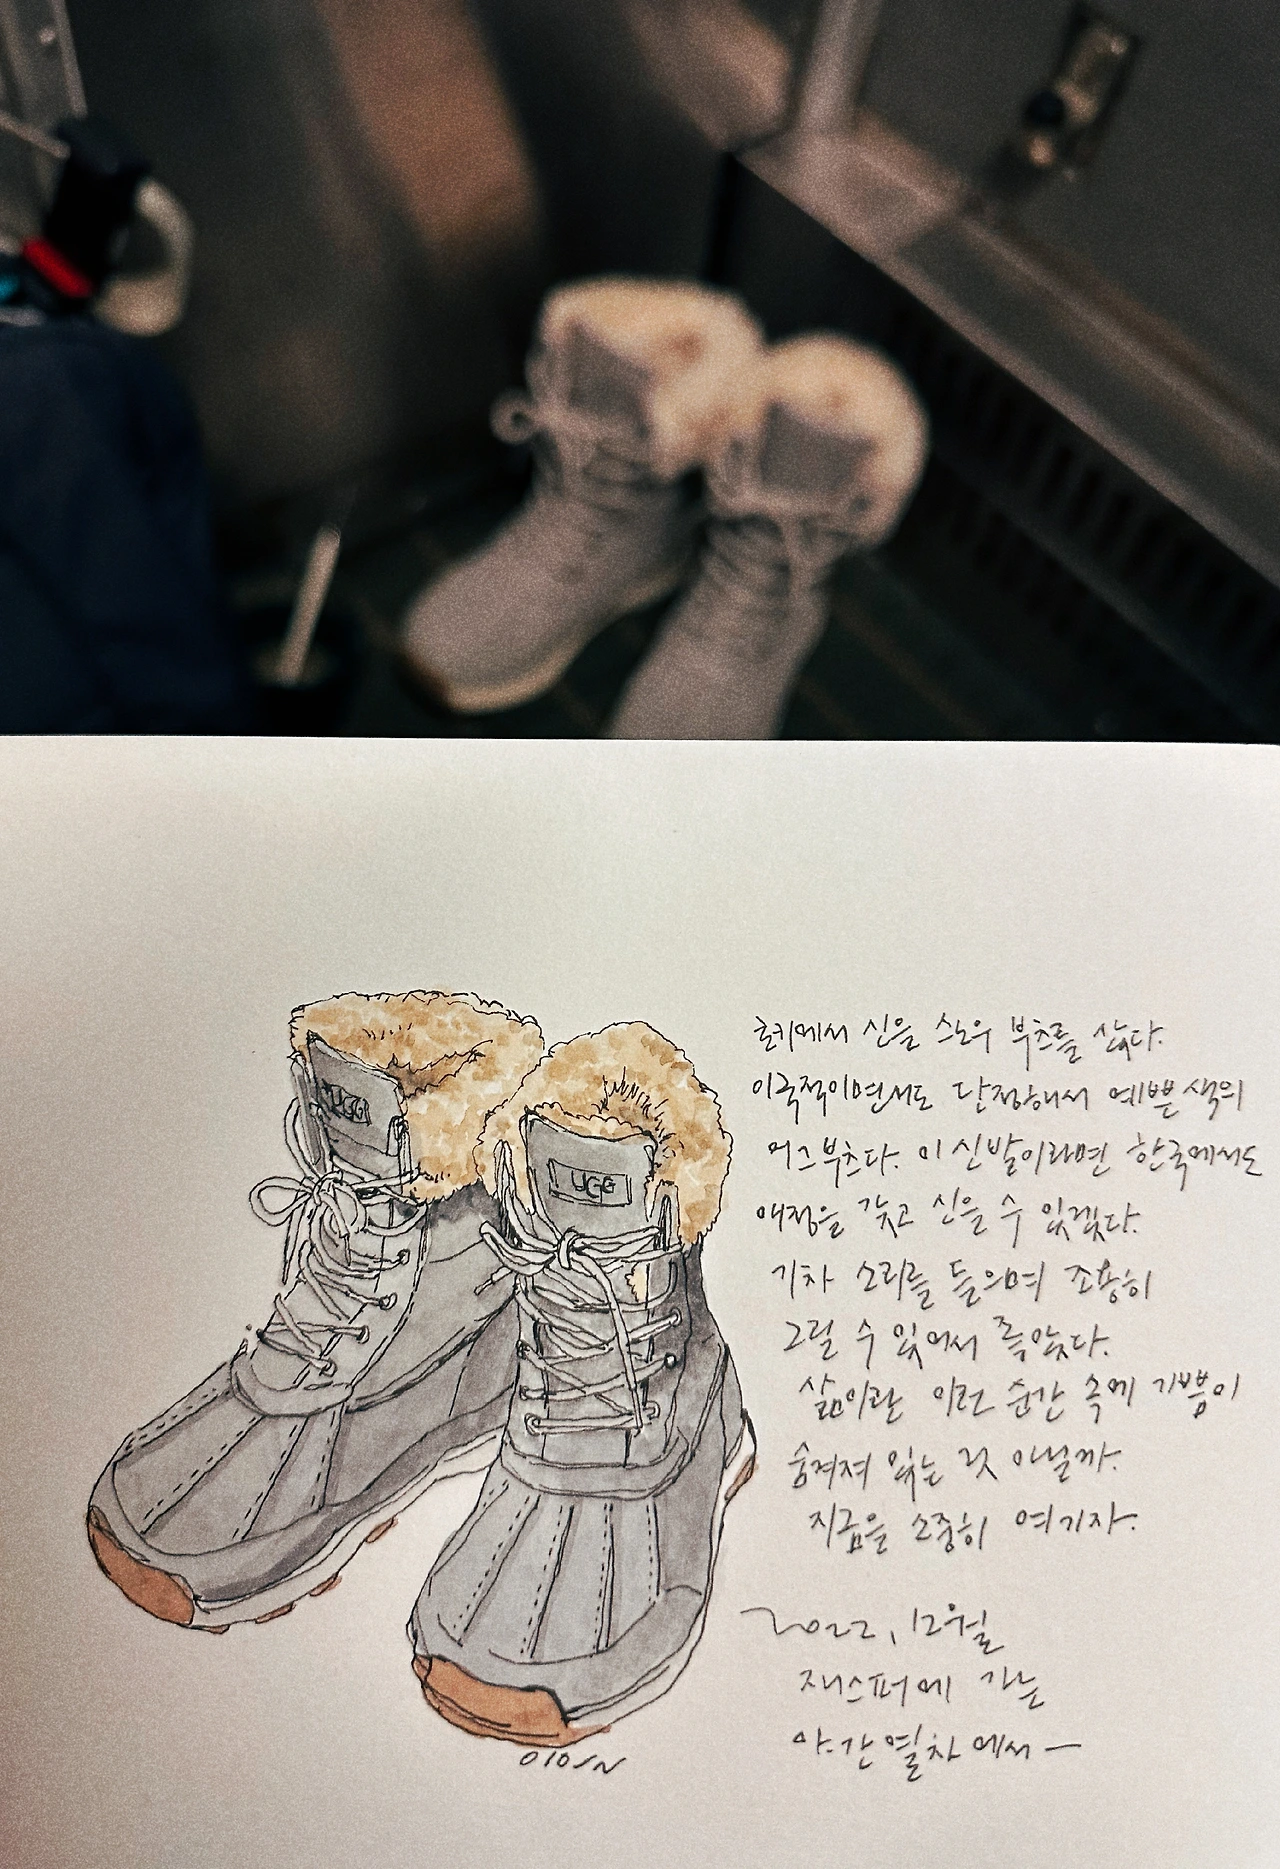 UGG
UGG
로키에서 신을 스노우 부츠를 샀다.
이국적이면서도 단정해서 예쁜 색의
어그부츠다. 이 신발이라면 한국에서도
애정을 갖고 신을 수 있겠다.
기차 소리를 들으며 조용히
그릴 수 있어서 좋았다.
삶이란 이런 순간 속에 기쁨이
숨겨져 있는 것 아닐까.
지금을 소중히 여기자.
2022, 12월
재스퍼에 가는
야간열차에서—